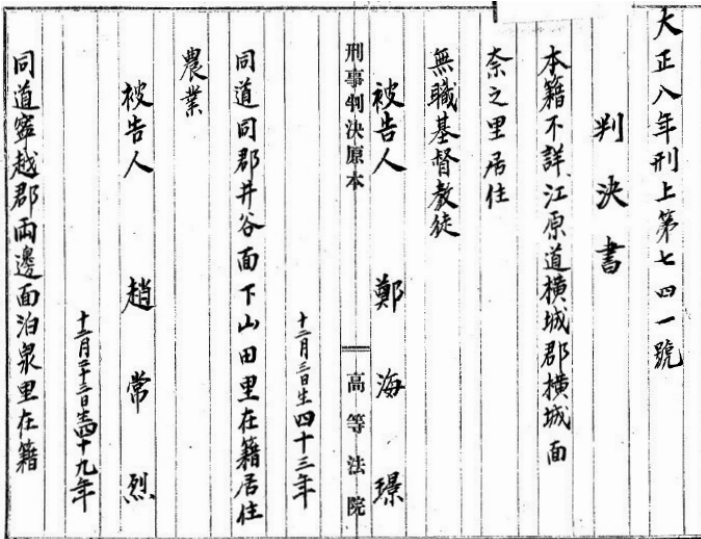 大正八年刑上第七四一號
判決書
本籍不詳、江原道横城郡横城面
奈之里居住
無職基督教徒
被告人 鄭海璟
刑事判決原本 高等法院
十二月三日生四十三年
同道同郡井谷面下山田里在籍居住
農業
被告人 趙常烈
十二月二十三日生四十九年
同道寧越郡両邊面泊泉里在籍